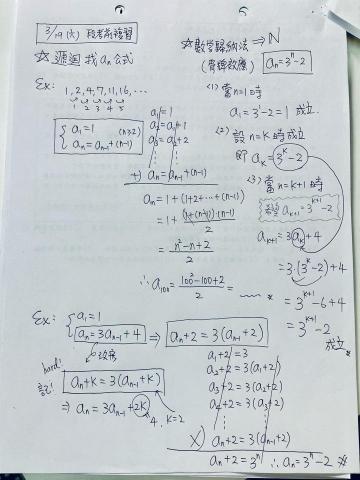 3/19(六) 段考前複習
☆ 遞迴 找 aₙ 公式
Ex: 1,2,4,7,11,16,...
1 2 3 4 5
{ a₁=1 (n≥2)
aₙ=aₙ₋₁+(n-1)
a₁=1
a₂=a₁+1
a₃=a₂+2
+) aₙ=aₙ₋₁+(n-1)
aₙ=1+(1+2+...+(n-1))
=1+ (1+(n-1))·(n-1)/2
= n²-n+2/2
∴ a₁₀₀= 100²-100+2/2 =
Ex: { a₁=1
aₙ=3aₙ₋₁+4 ⇒ aₙ+2=3(aₙ₋₁+2)
hard!
改成
記! aₙ+k=3(aₙ₋₁+k)
⇒ aₙ=3aₙ₋₁+2k
4. k=2
a₁+2=3
a₂+2=3(a₁+2)
a₃+2=3(a₂+2)
a₄+2=3(a₃+2)
×) aₙ+2=3(aₙ₋₁+2)
aₙ+2=3ⁿ ∴aₙ=3ⁿ-2 ※
☆數學歸納法 ⇒ N
(骨牌效應) aₙ=3ⁿ-2
(1) 當n=1時
a₁=3¹-2=1 成立.
(2) 設n=k時成立
即 aₖ=3ᵏ-2
(3) 當n=k+1時
aₖ₊₁=3ᵏ⁺¹-2
aₖ₊₁=3aₖ+4
=3·(3ᵏ-2)+4
=3ᵏ⁺¹-6+4
=3ᵏ⁺¹-2
成立